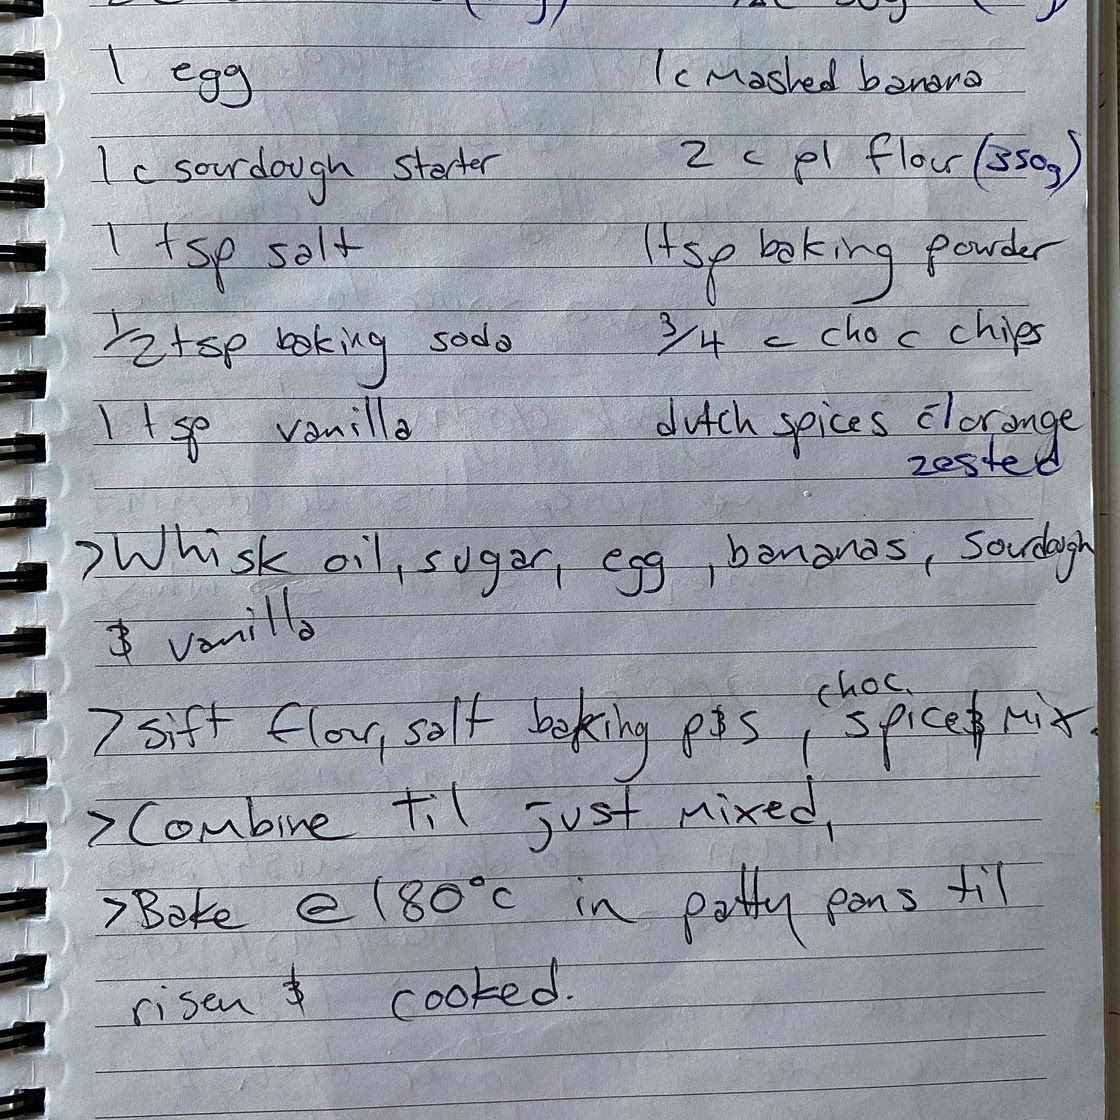 1 egg 1c mashed banana
1 c sourdough starter 2 c pl flour (350g)
1 tsp salt 1tsp baking powder
1/2 tsp baking soda 3/4 c choc chips
1 tsp vanilla dutch spices 1 orange
zested
>Whisk oil, sugar, egg, bananas, sourdough
& vanilla
choc
> sift flour, salt baking p&s, spice & mix.
> Combine til just mixed,
>Bake @ 180°c in patty pans til
risen & cooked.